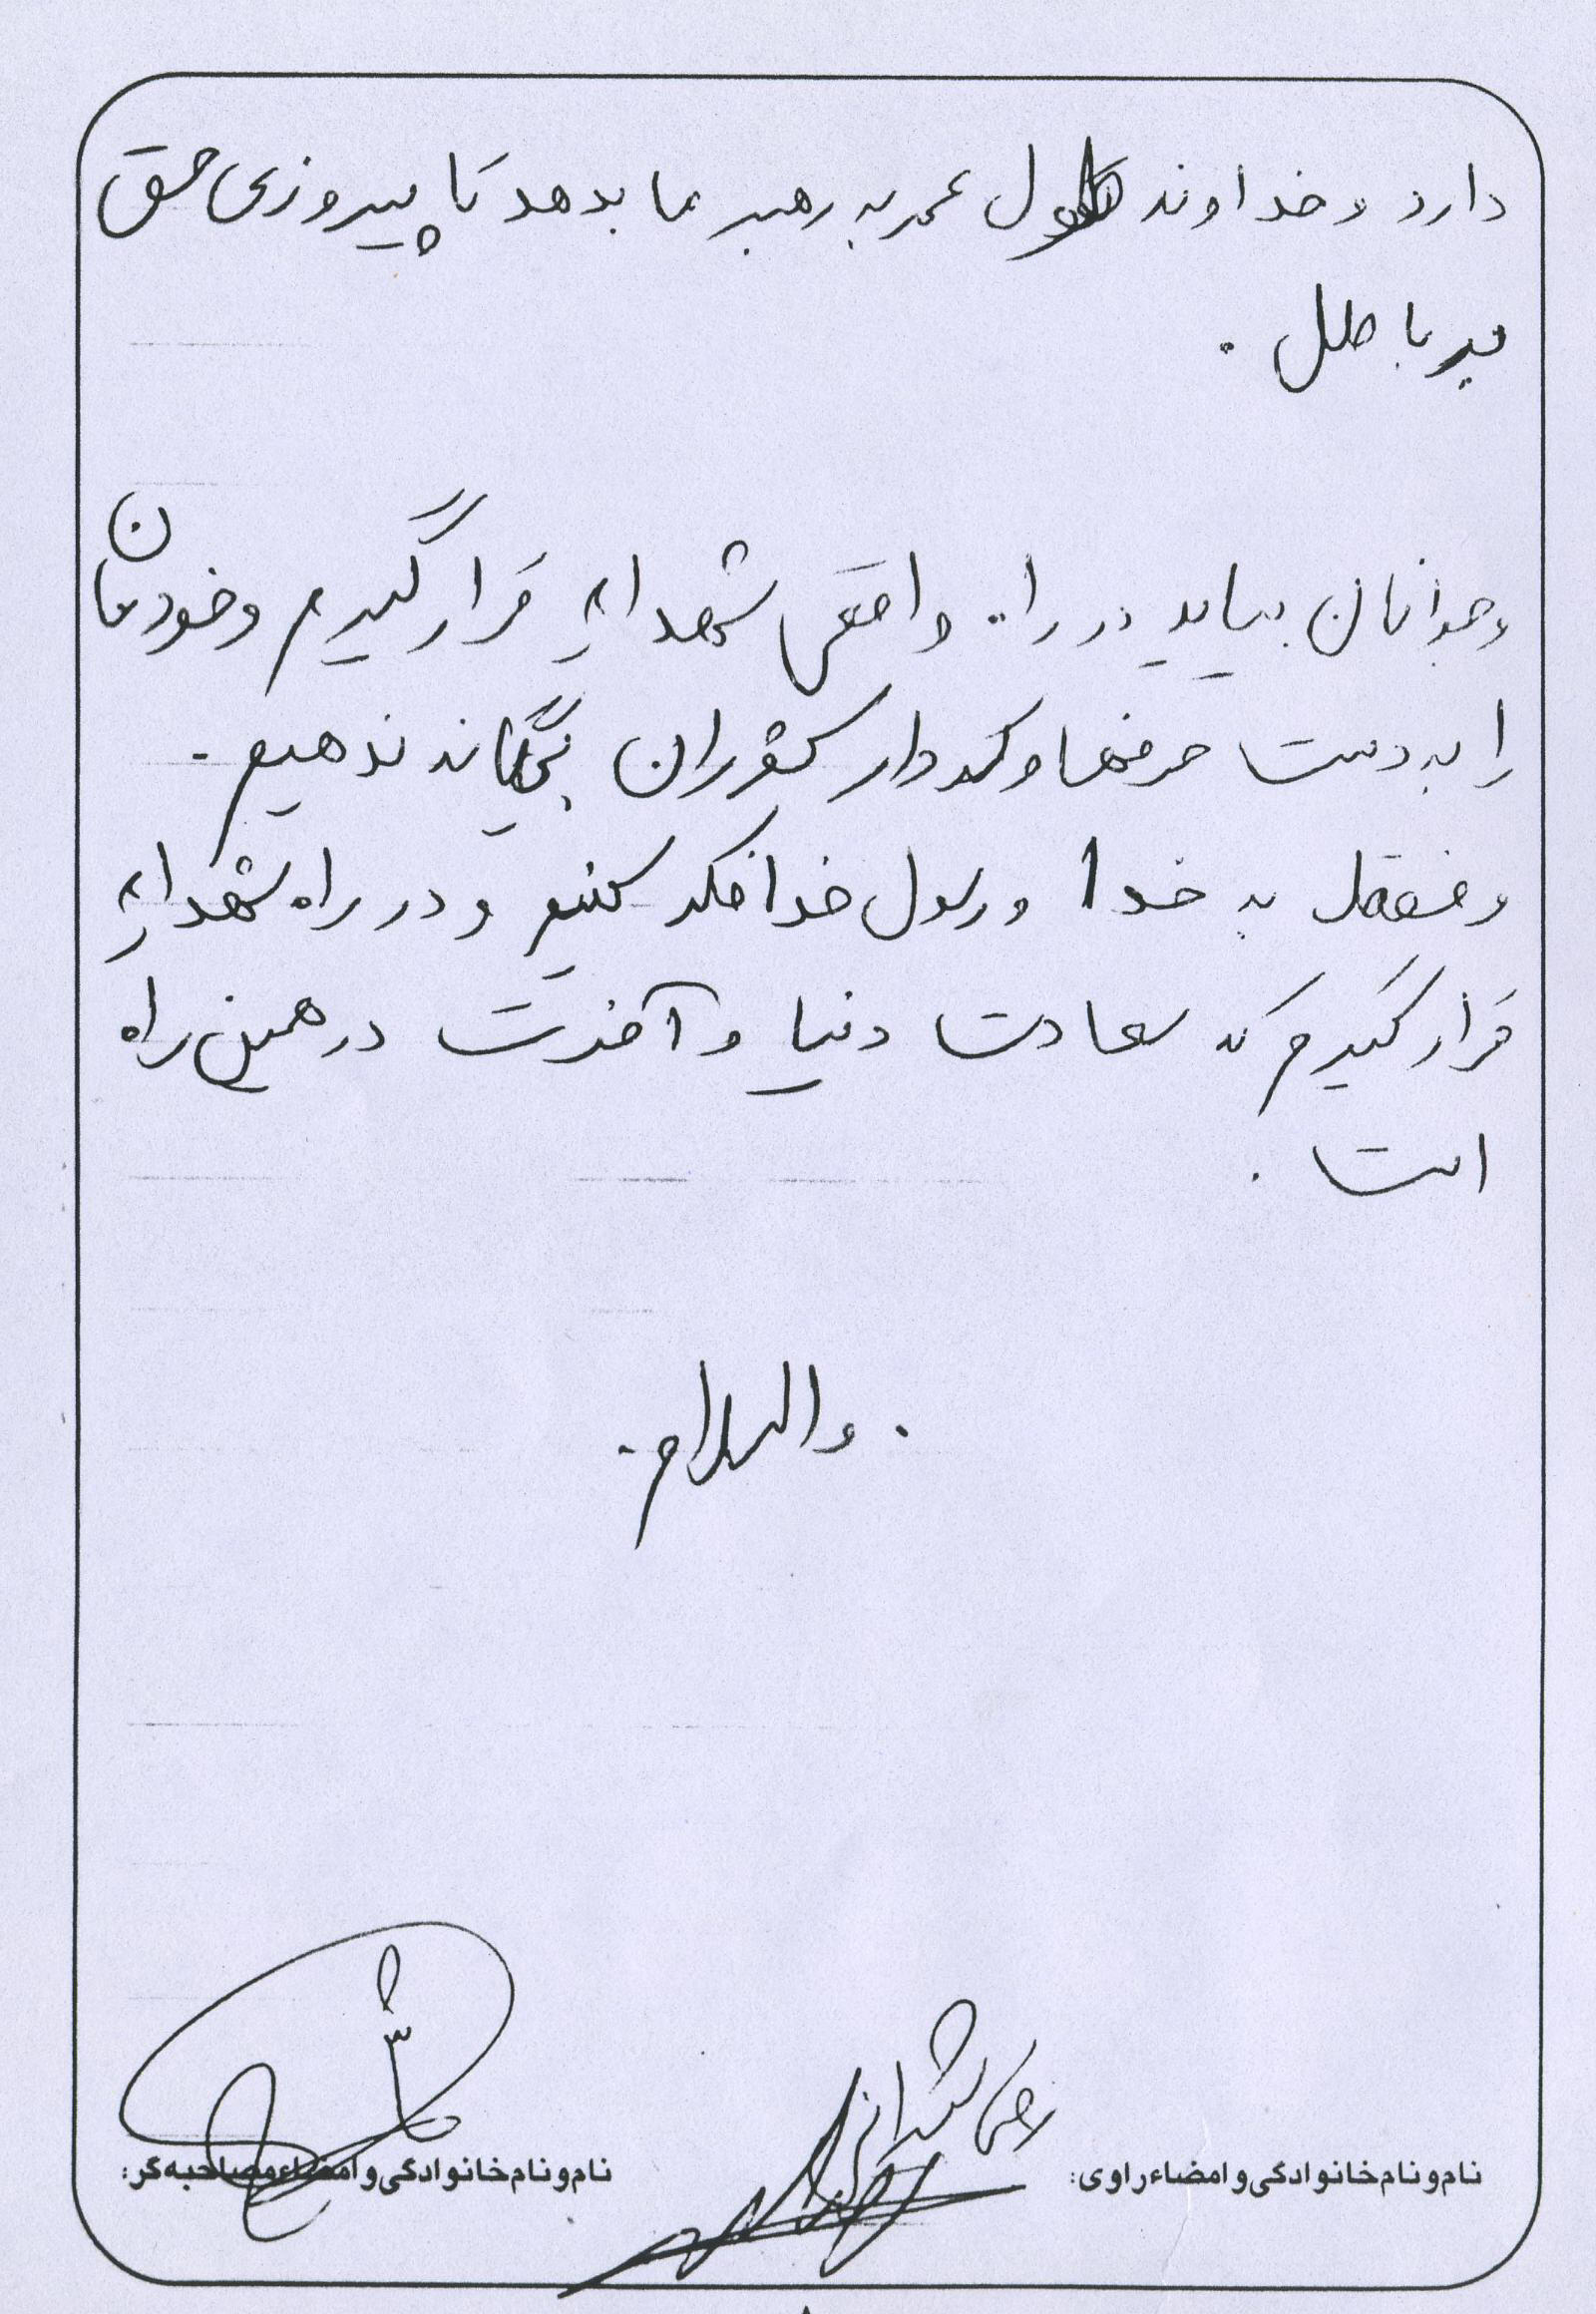 دارد و خداوند طول عمر به رهبر ما بدهد تا پیروزی حق
بر باطل .
و جوانان بیایید در راه واقعی شهدایه قرار گیریم و خودمان
را به دست حرفها و کردار کشوران بیگانه ندهیم .
و فقط به خدا و رسول خدا فکر کنیم و در راه شهدایه
قرار گیریم که سعادت دنیا و آخرت در همین راه
است .
. والسلام .
نام و نام خانوادگی و امضاء راوی:
نام و نام خانوادگی و امضاء مصاحبه گر: